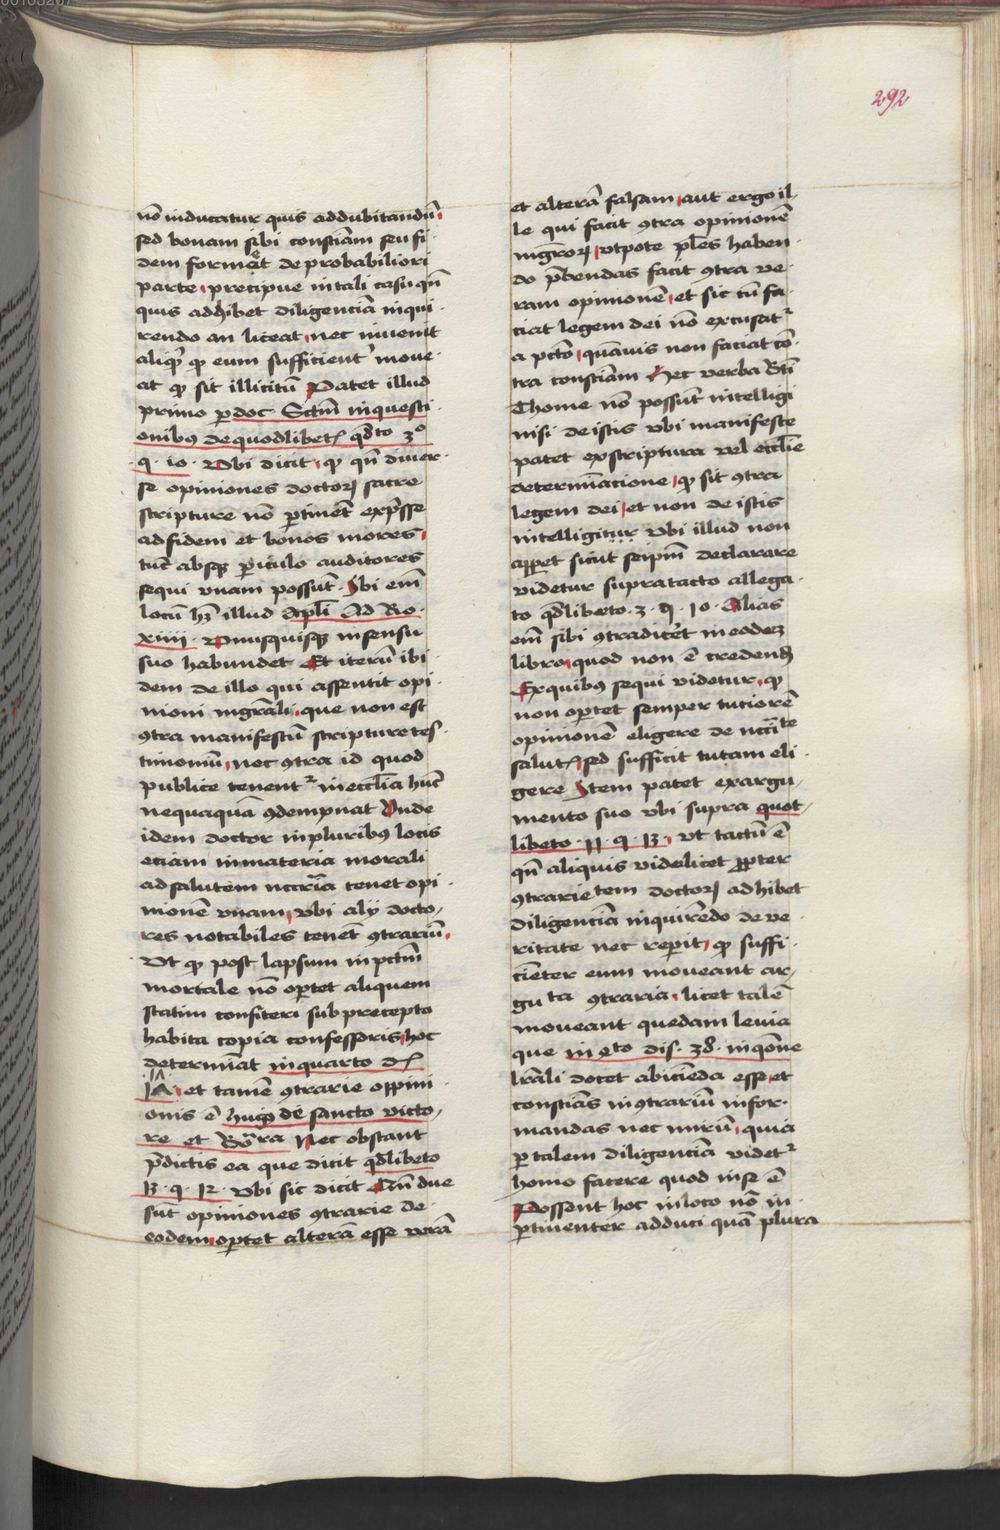 292
nō inducatur quis addubitandū
sed bonam sibi consciam seu fi
dem formet de probabiliori
parte precipue in tali casu qn̄
quis adhibet diligenciā inqui
rendo an liceat nec invenit
aliqd̓ qꝫ eum sufficient̓ move
at qꝫ sit illicitū Patet illud
primo ꝑ doc Sctm̄ in questi
onibꝫ de quodlibetꝭ qd̄to 3º
q · 10 · Ubi dicit qꝫ qn̄ diver
se opiniones doctoꝝ sacre
scripture nō ꝑtinēt exp̄sse
ad fidem et bonos mores
tūc absqꝫ ꝑiculo auditores
sequi unam possūt · Ibi em̄
locū hꝫ illud Apl̄i Ad Ro ·
xiiii · Unusquisqꝫ in sensu
suo habundet Et iterū ibi
dem de illo qui assentit opi
nioni mgr̄ali que non est
ꝯtra manifestū scripture tes
timoniū nec ꝯtra id quod
publice tenent᷑ in eccl̄ia hūc
nequaquā ꝯdempnat Unde
idem doctor in pluribꝫ locis
eciam in materia morali
ad salutem nccr̄ia tenet opi
nionē unam ubi alij docto
res notabiles tenēt ꝯtrariū
Ut qꝫ post lapsum in pctm̄
mortale nō oꝑtet aliquem
statim confiteri sub precepto
habita copia confessoris hoc
determīat in quarto dꝭ
1Λ et tamē ꝯtrarie oppini
onis ē hugo de sancto victo
re et Bōra Nec obstant
p̄dictis ea que dicit qd̄libeto
13 · q · 12 · ubi sic dicit Cū due
sūt opiniones ꝯtrarie de
eodem oꝑtet alterā esse verā
et alterā falsam aut ergo il
le qui facit ꝯtra opinionē
mgr̄oꝝ utpote pl̄es haben
do p̄bendas facit ꝯtra ve
ram opinionē et sic cū fa
ciat legem dei nō excusat᷑
a pctō quāvis non faciat cō
tra consciam Hec verba Sti
Thome nō possūt intelligi
nisi de istis ubi manifeste
patet ex scriptura vel eccl̄ie
determīatione qꝫ sit ꝯtra
legem dei et non de istis
intelligitur ubi illud non
apꝑet sicut seip̄m declarare
videtur supratacto allega
to qd̄libeto · 3 · q · 10 · Alias
em̄ sibi ꝯtradicēt in eodeꝫ
libro quod non ē credend̄
Ex quibꝫ sequi videtur qꝫ
non oꝑtet semper tuciorē
opinionē eligere de nccī te
salutꝭ sed sufficit tutam eli
gere Item patet ex argu
mento suo ubi supra quot
libeto · 11 · q · 13 · ut tactū ē
qn̄ aliquis videlicet ꝓpter
ꝯtrarietem doctoꝝ adhibet
diligenciā inquirēdo de ve
ritate nec reperit qꝫ suffi
ciēter eum moveant ar
gu ta ꝯtraria licet talē
moveant quedam levia
que in qto dis · 38 · in qōne
lr̄ali docet abicienda esse et
consciās in ꝯtrariū infor
mandas nec mirū quia
ꝑ talem diligenciā videt᷑
homo facere quod in se ē
Possent hoc in loco nō in
ꝑtinenter adduci quā plura